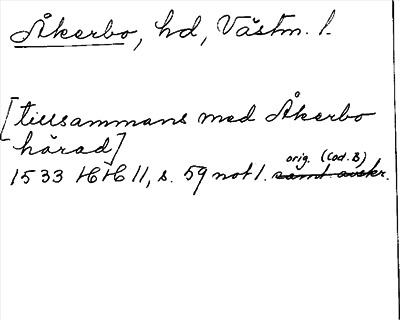 Åkerbo, hd, Västm. l.
[tillsammans med Åkerbo
härad]
orig. (Cod. B)
1533 HH 11, s. 59 not 1. samt avskr.